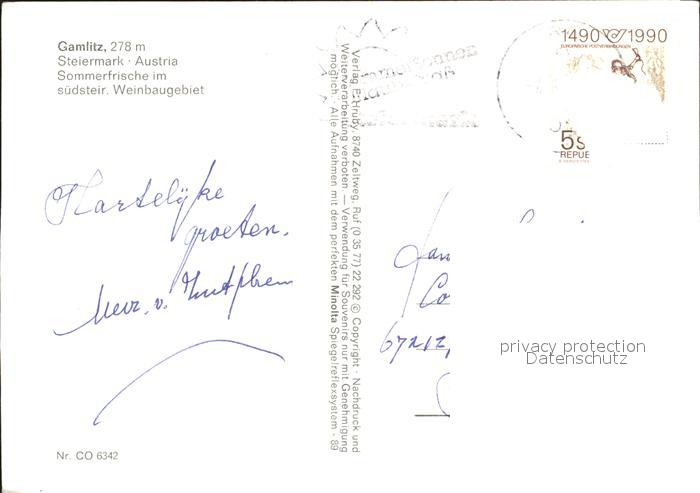 Gamlitz, 278 m
Steiermark · Austria
Sommerfrische im
südsteir. Weinbaugebiet
Hartelijke
groeten.
Mevr. v. Zutphen
Nr. CO 6342
Verlag F. Hruby, 8740 Zeltweg, Ruf (0 35 77) 22 292 © Copyright · Nachdruck und
Weiterverarbeitung verboten. — Verwendung für Souvenirs nur mit Genehmigung
möglich. · Alle Aufnahmen mit dem perfekten Minolta Spiegelreflexsystem · 89
1490 1990
EUROPÄISCHE POSTVERBINDUNGEN
5s
REPUB
Co
privacy protection
Datenschutz